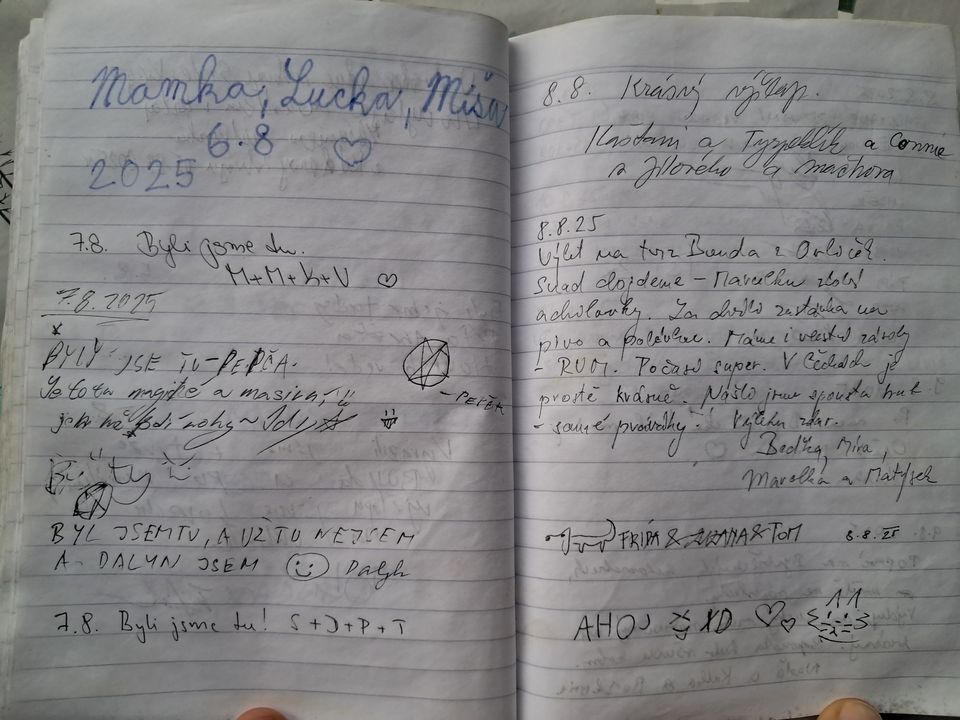 Mamka, Lucka, Míša
6.8
2025
7.8. Byli jsme tu.
M+M+K+V
7.8.2025
BYLY JSE TU-PEPŠA.
Je to tu magické a masivní !!
- PEPEK
BYL JSEM TU, A UŽ TU NEJSEM
A DALYN JSEM Dalyh
7.8. Byli jsme tu! S+J+P+T
8.8. Krásný výšlap.
Kaštani a Tygdlík a Connie
z Jílového a machora
8.8.25
Výlet na tvrz Bouda z Orliček.
Snad dojdeme - Marcelku zlobí
achilovky. Za chvíli zastávka na
pivo a polévku. Máme i vlastní zásoby
- RUM. Počasí super. V Čechách je
prostě krásně. Našlo jsme spousta hub
- samé praváky! Výletu zdar.
Bedřka, Míra,
Marcelka a Matýsek
FRÍDA & ZUZANA & TOM 8.8.25
AHOJ XD